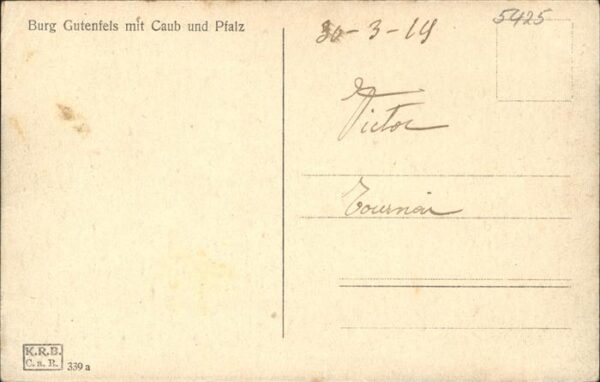 Burg Gutenfels mit Caub und Pfalz
30-3-19
5425
Victor
Tournai
K.R.B.
C.a.R.
339 a